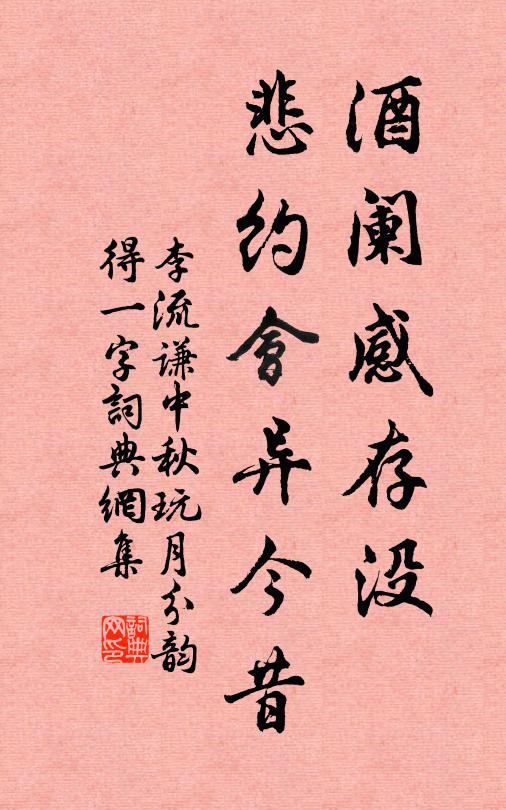 酒阑感存没
悲约會异今昔
李流谦中秋玩月分韵
得一字詞典網集
詞典
网印